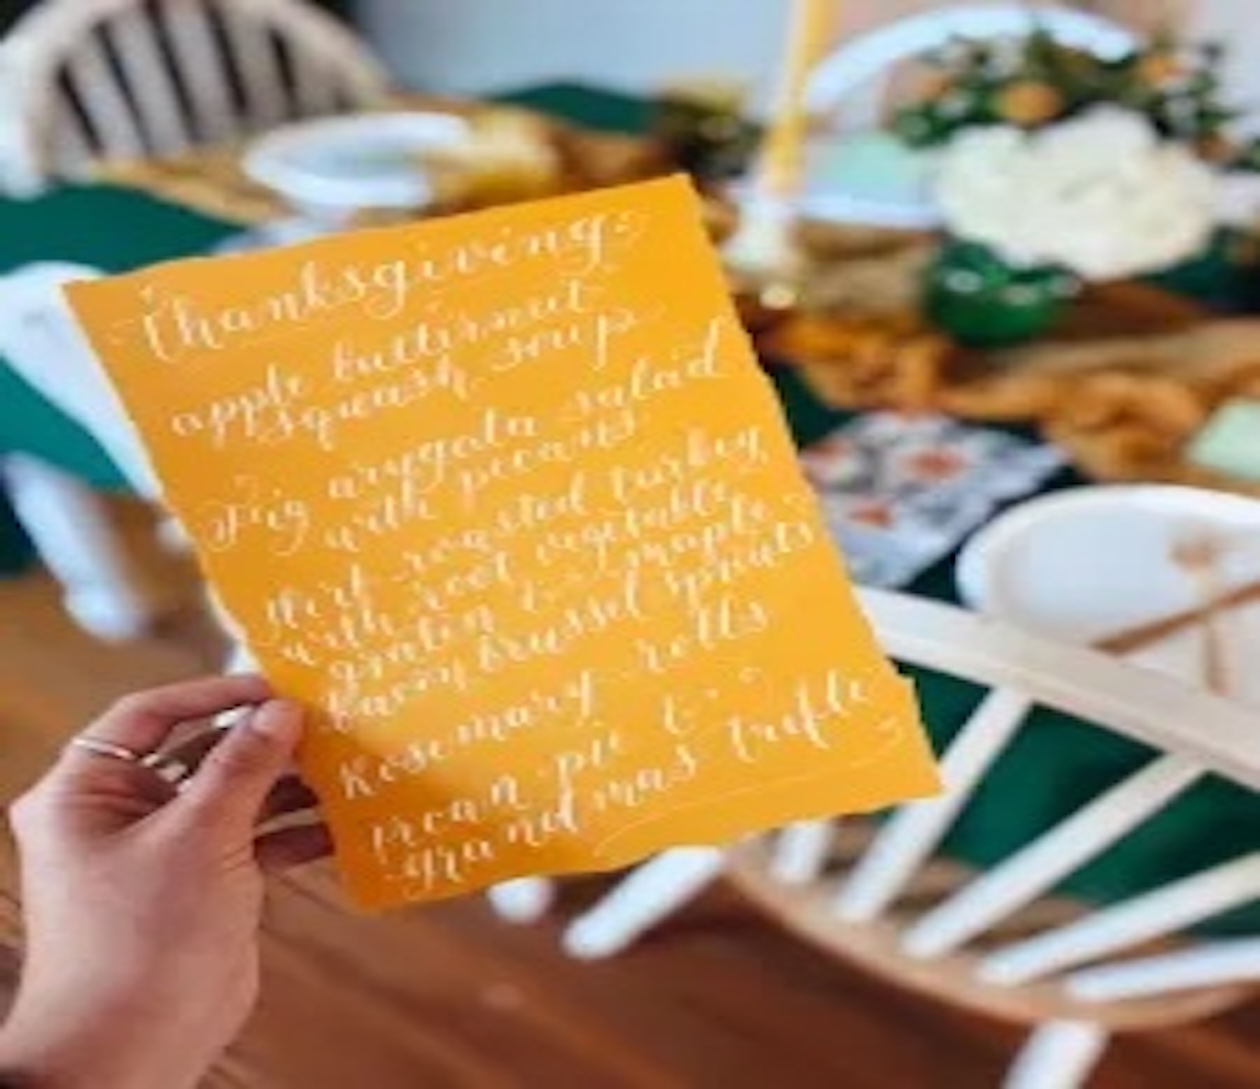 Thanksgiving:
apple butternut
squash soup
Fig arugala salad
with pecans
Herb roasted turkey
with root vegetable
gratin & maple
bacon brussel sprouts
Rosemary rolls
Pecan pie &
grandmas trifle